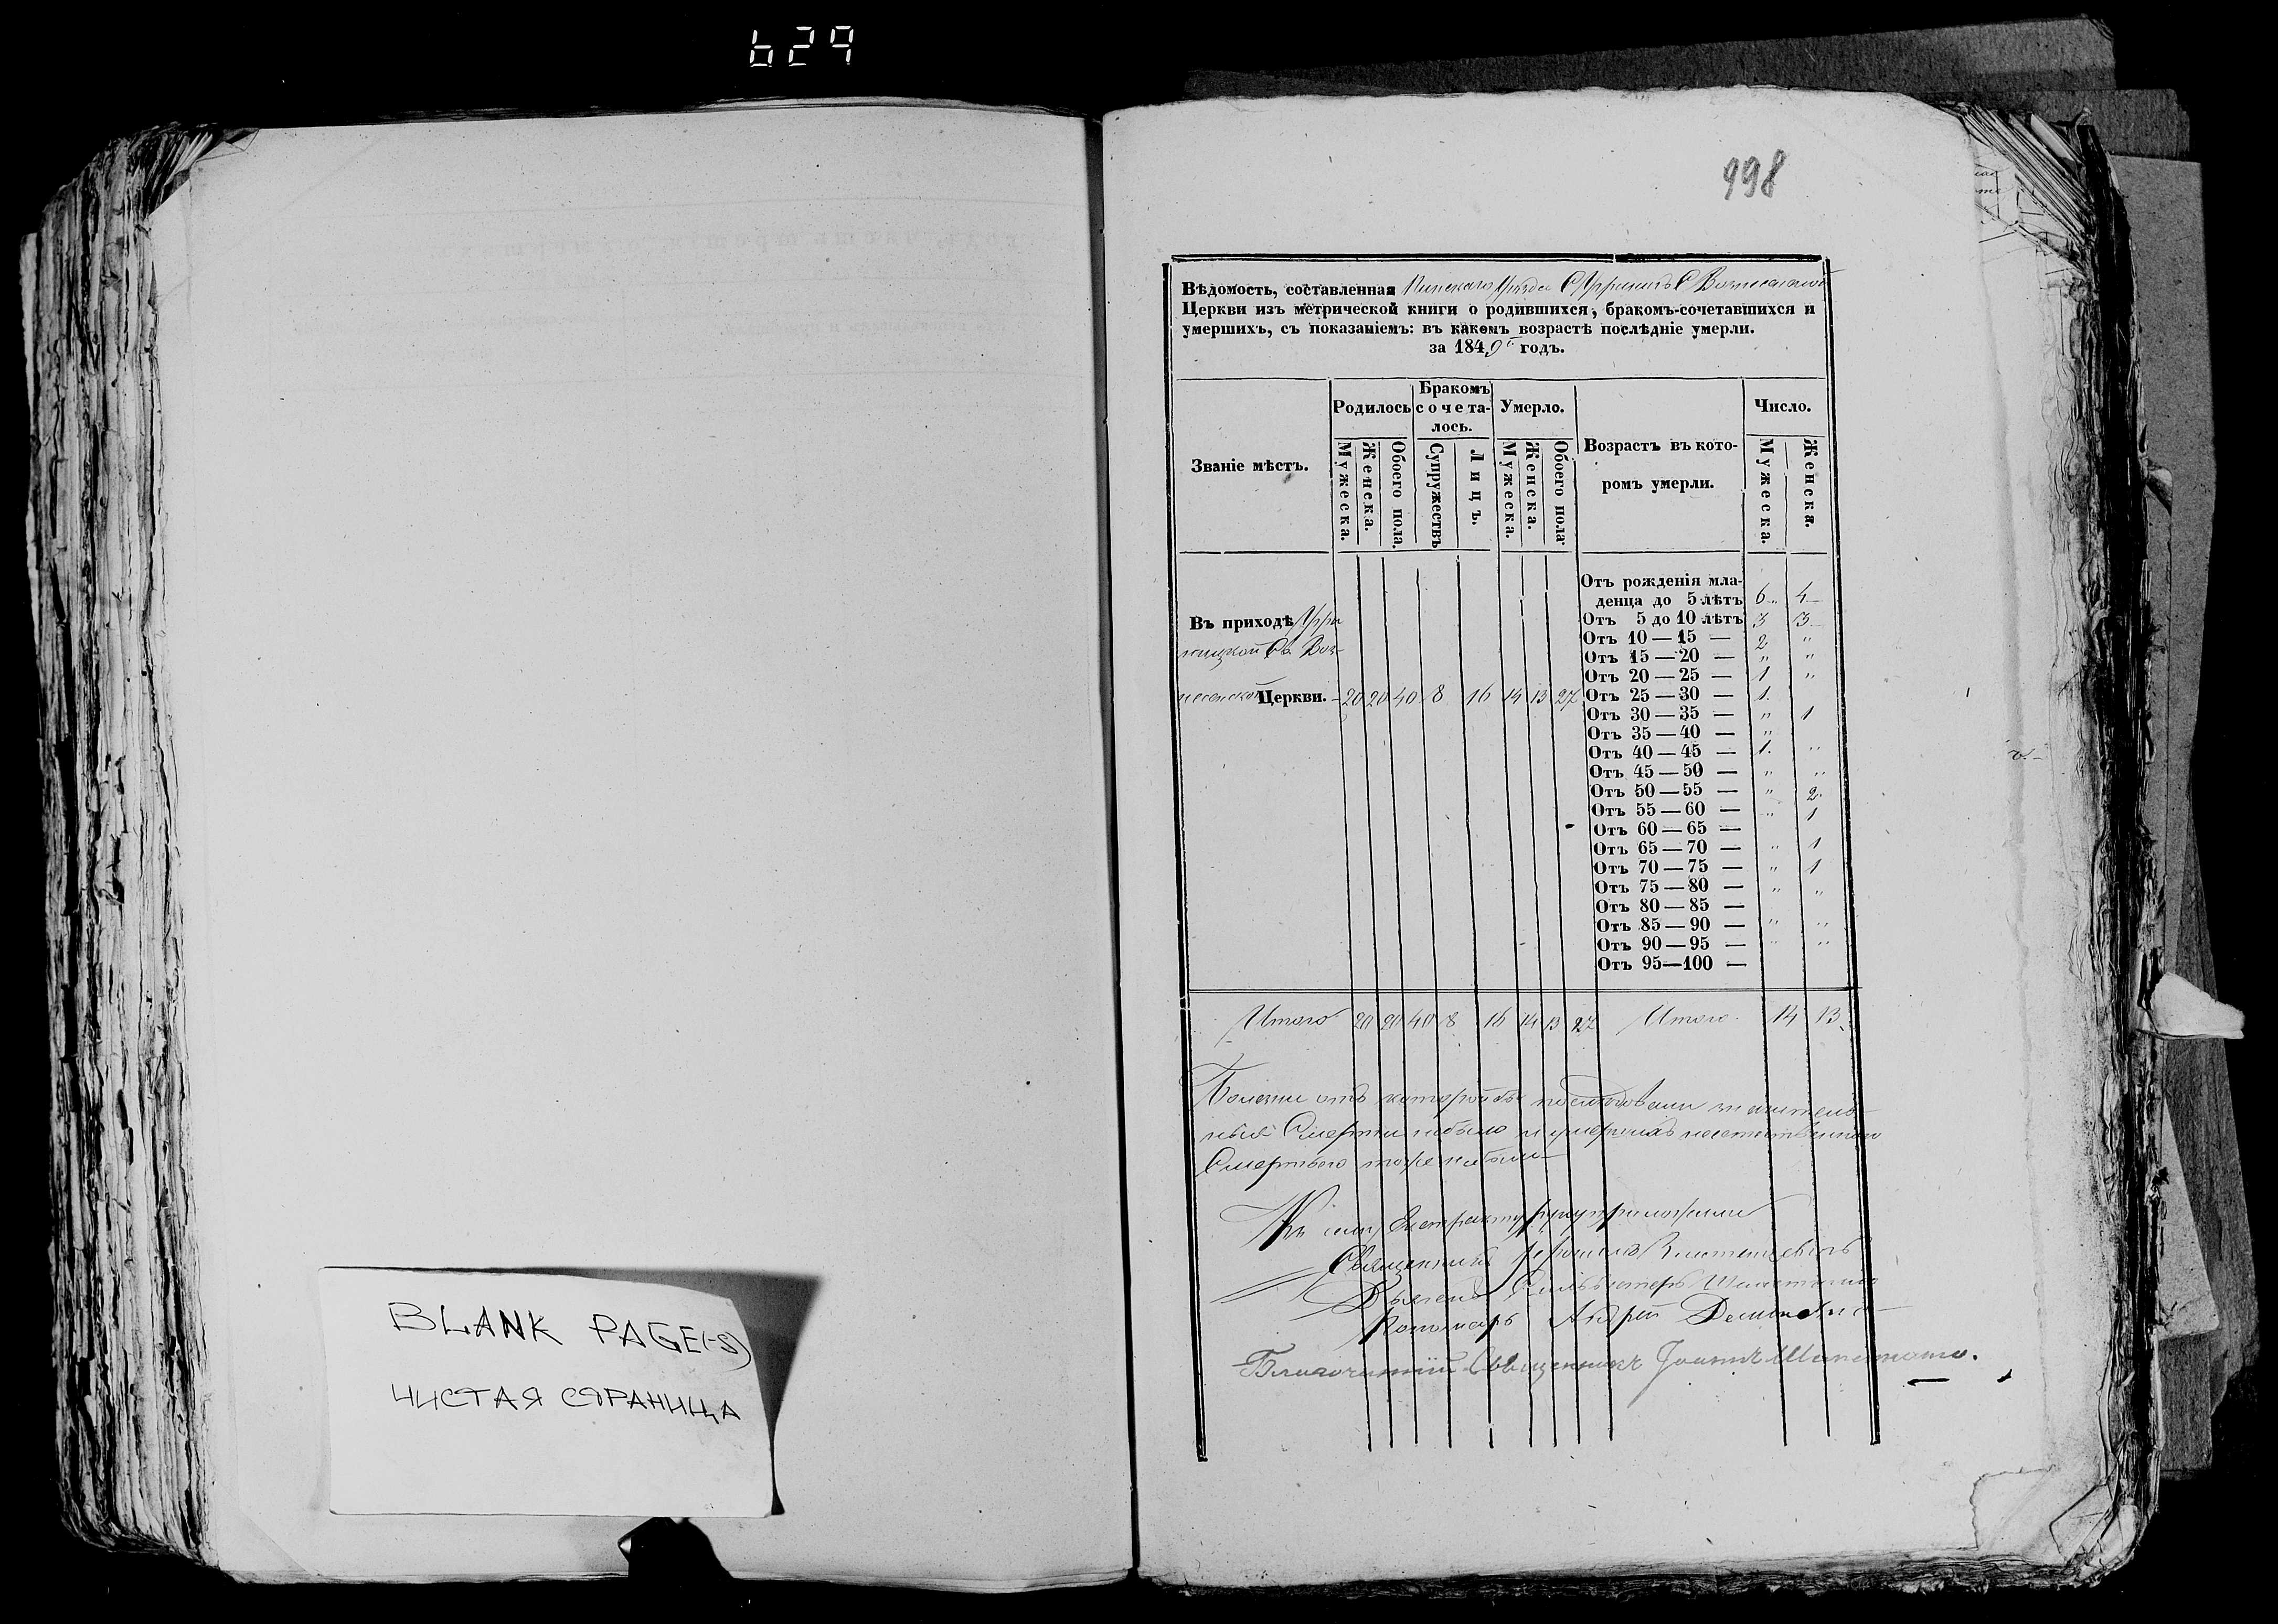 629
998
Вѣдомость, составленная Пинскаго Уѣзда
Церкви изъ метрической книги о родившихся, бракомъ-сочетавшихся и
умершихъ, съ показаніемъ: въ какомъ возрастѣ послѣдніе умерли.
за 1849 годъ.
Званіе мѣстъ.
Родилось
Бракомъ
сочета-
лось.
Умерло.
Возрастъ въ кото-
ромъ умерли.
Число.
Мужеска.
Женска.
Обоего пола.
Супружествъ
Лицъ.
Мужеска.
Женска.
Обоего пола
Мужеска.
Женска.
Отъ рожденія мла-
денца до 5 лѣтъ 6 4
Въ приходѣ
Отъ 5 до 10 лѣтъ 3 3
Отъ 10 — 15 — 2 "
Св. Воз-
Отъ 15 — 20 — " "
Отъ 20 — 25 — 1 "
несенской Церкви. 20 20 40 8 16 14 13 27
Отъ 25 — 30 — 1
Отъ 30 — 35 — " 1
Отъ 35 — 40 — "
Отъ 40 — 45 — 1 "
Отъ 45 — 50 — " "
Отъ 50 — 55 — " 2
Отъ 55 — 60 — " 1
Отъ 60 — 65 —
Отъ 65 — 70 — " 1
Отъ 70 — 75 — " 1
Отъ 75 — 80 — " "
Отъ 80 — 85 —
Отъ 85 — 90 — " "
Отъ 90 — 95 — " "
Отъ 95—100 —
Итого 20 20 40 8 16 14 13 27 Итого 14 13
Болезни отъ которой бы последовали значитель-
ныя Смерти небыло и умершихъ неестественною
Смертью тоже небыло
Къ сему Екстракту руку приложили
Священникъ
Дьячекъ Сильвестеръ
Пономарь Андрей
Благочинный Священникъ Іоаннъ
BLANK PAGE(-S)
ЧИСТАЯ СТРАНИЦА